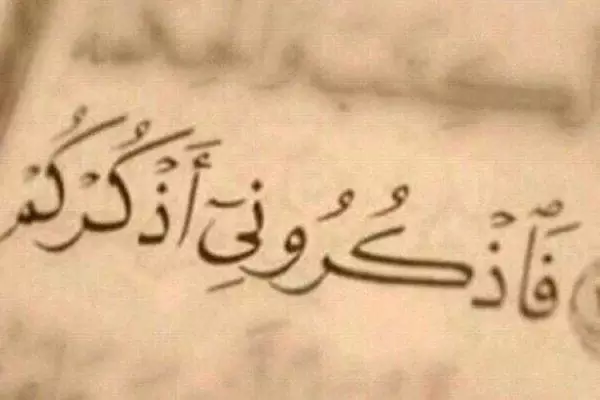 فَٱذْكُرُونِىٓ أَذْكُرْكُمْ